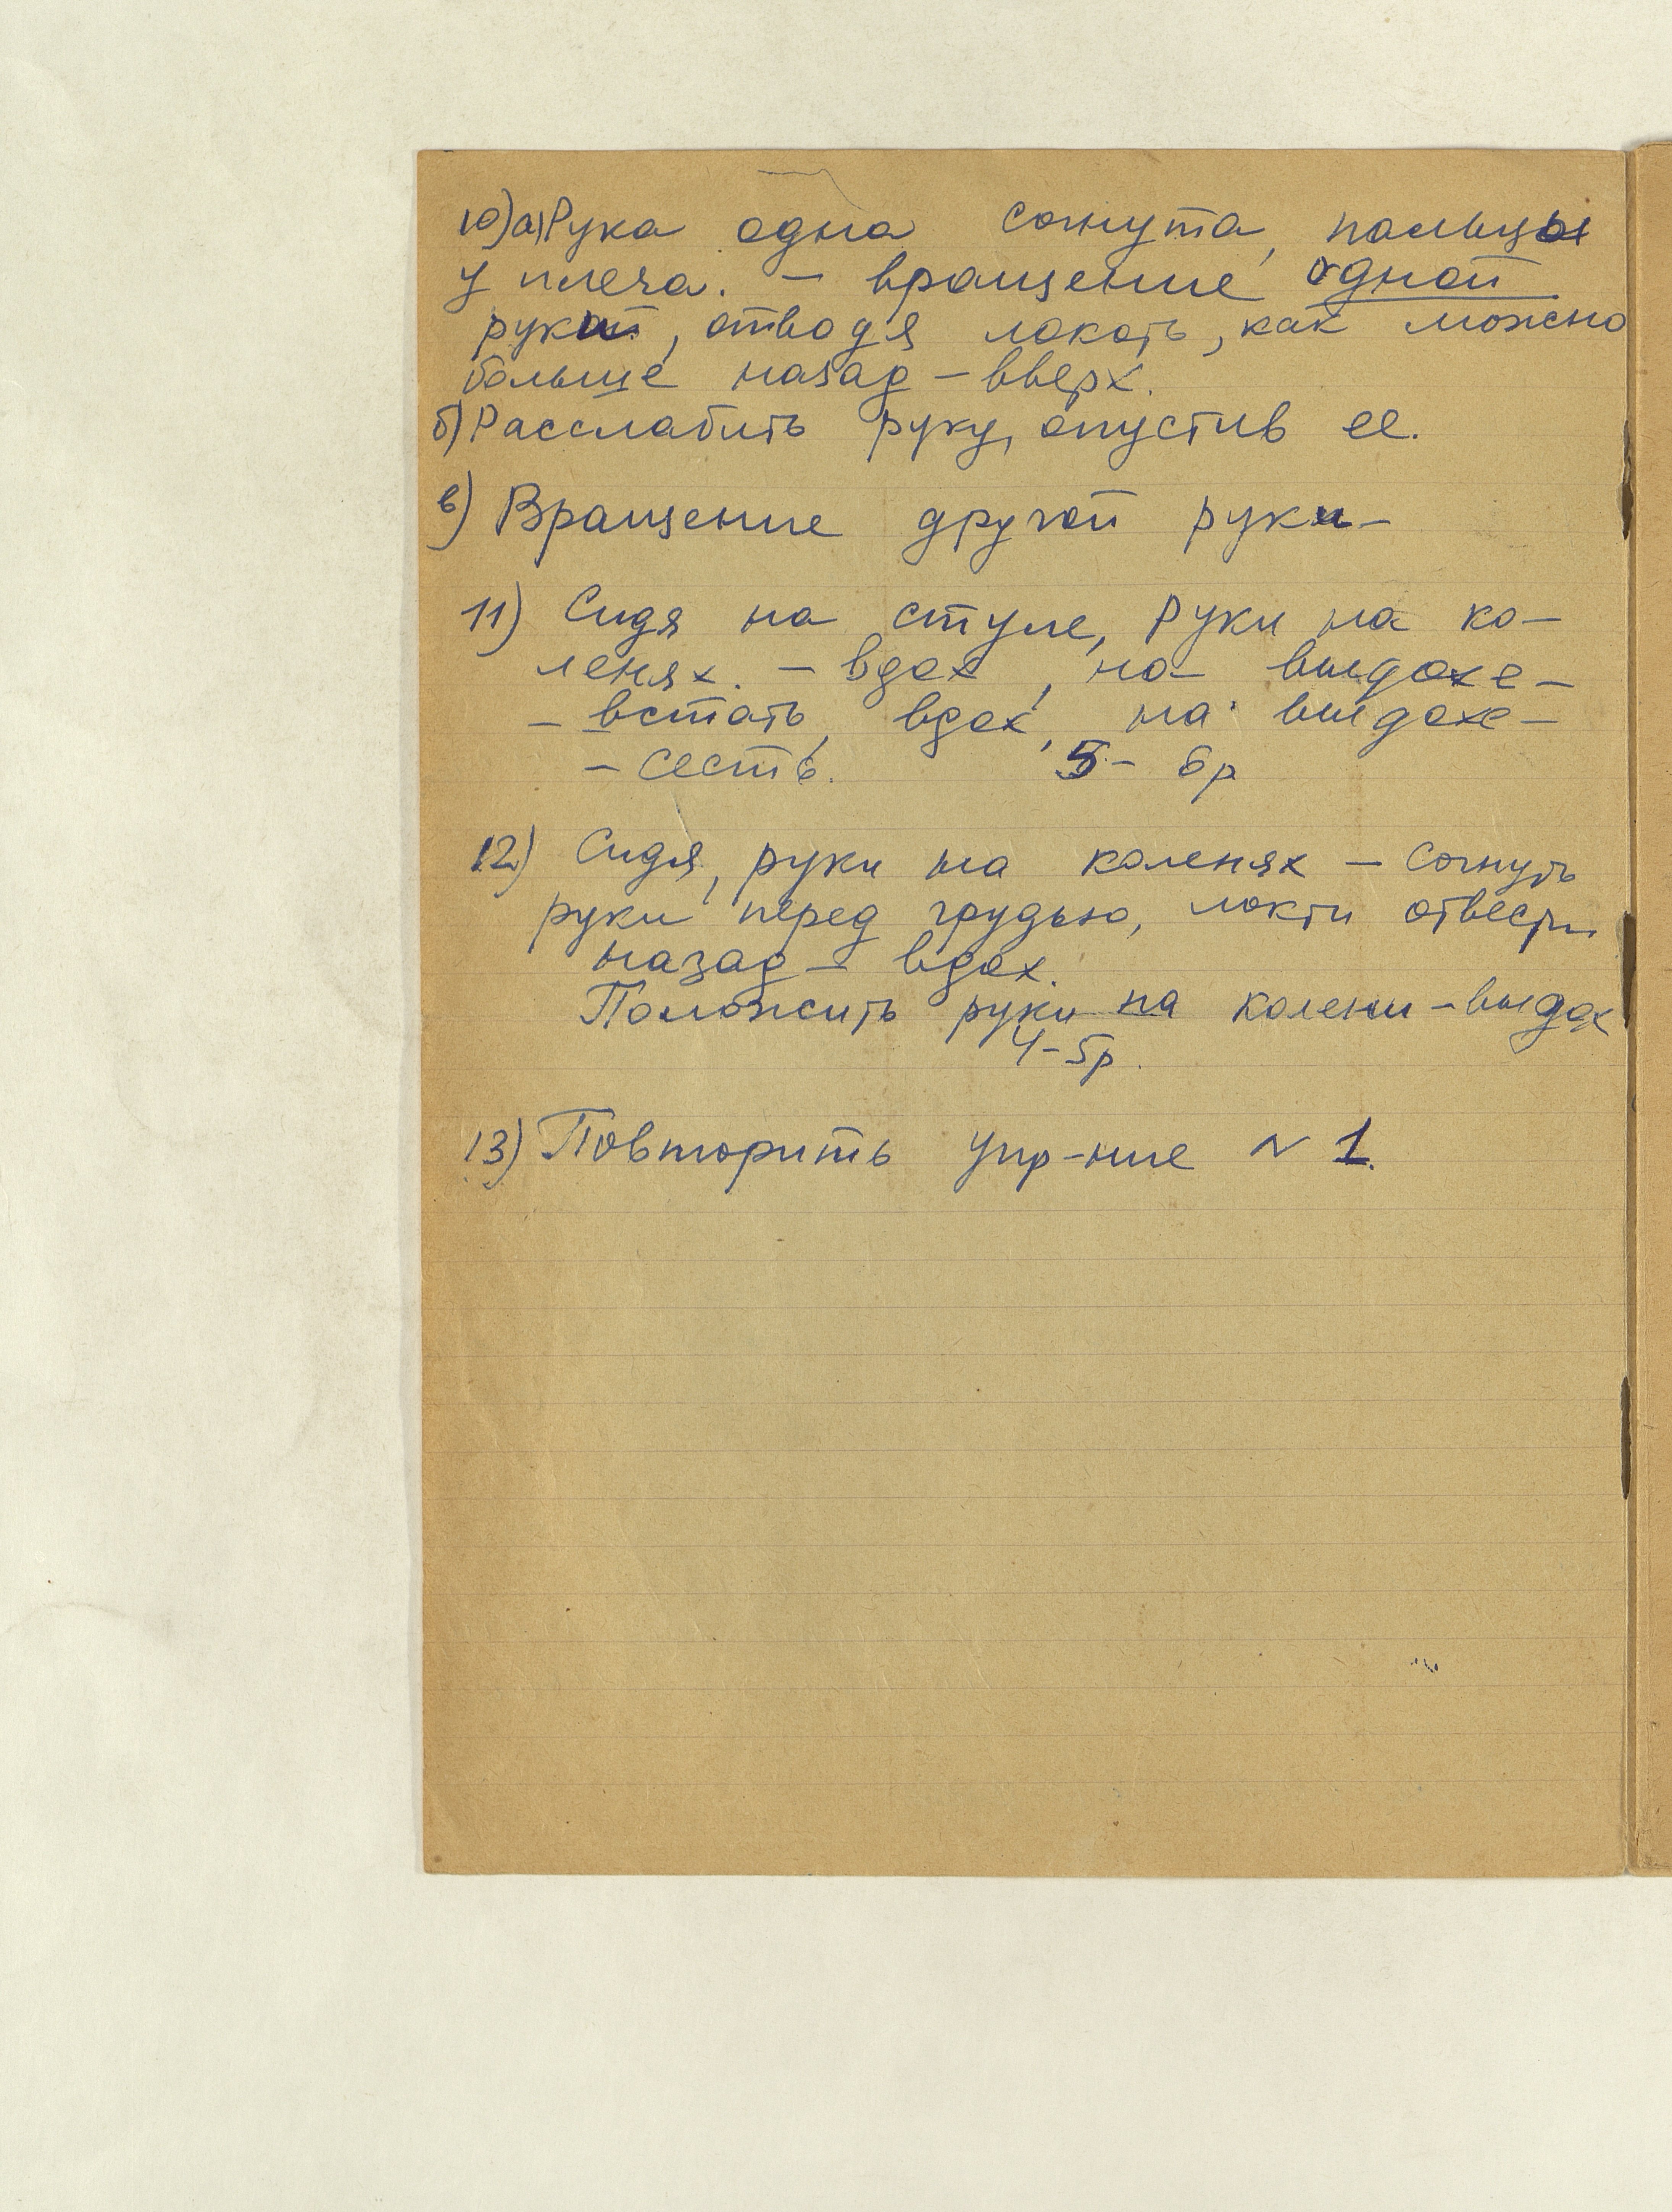 10) а) Рука одна согнута, пальцы
у плеча. – вращение одной
рукой, отводя локоть, как можно
больше назад – вверх.
б) Расслабить руку, опустив ее.
в) Вращение другой руки –
11) Сидя на стуле, руки на ко-
ленях. – вдох, на выдохе –
– встать, вдох, на выдохе –
– сесть. 5 – 6 р
12) Сидя, руки на коленях – согнуть
руки перед грудью, локти отвести
назад – вдох.
Положить руки на колени – выдох
4 – 5 р.
13) Повторить упр-ние N 1.